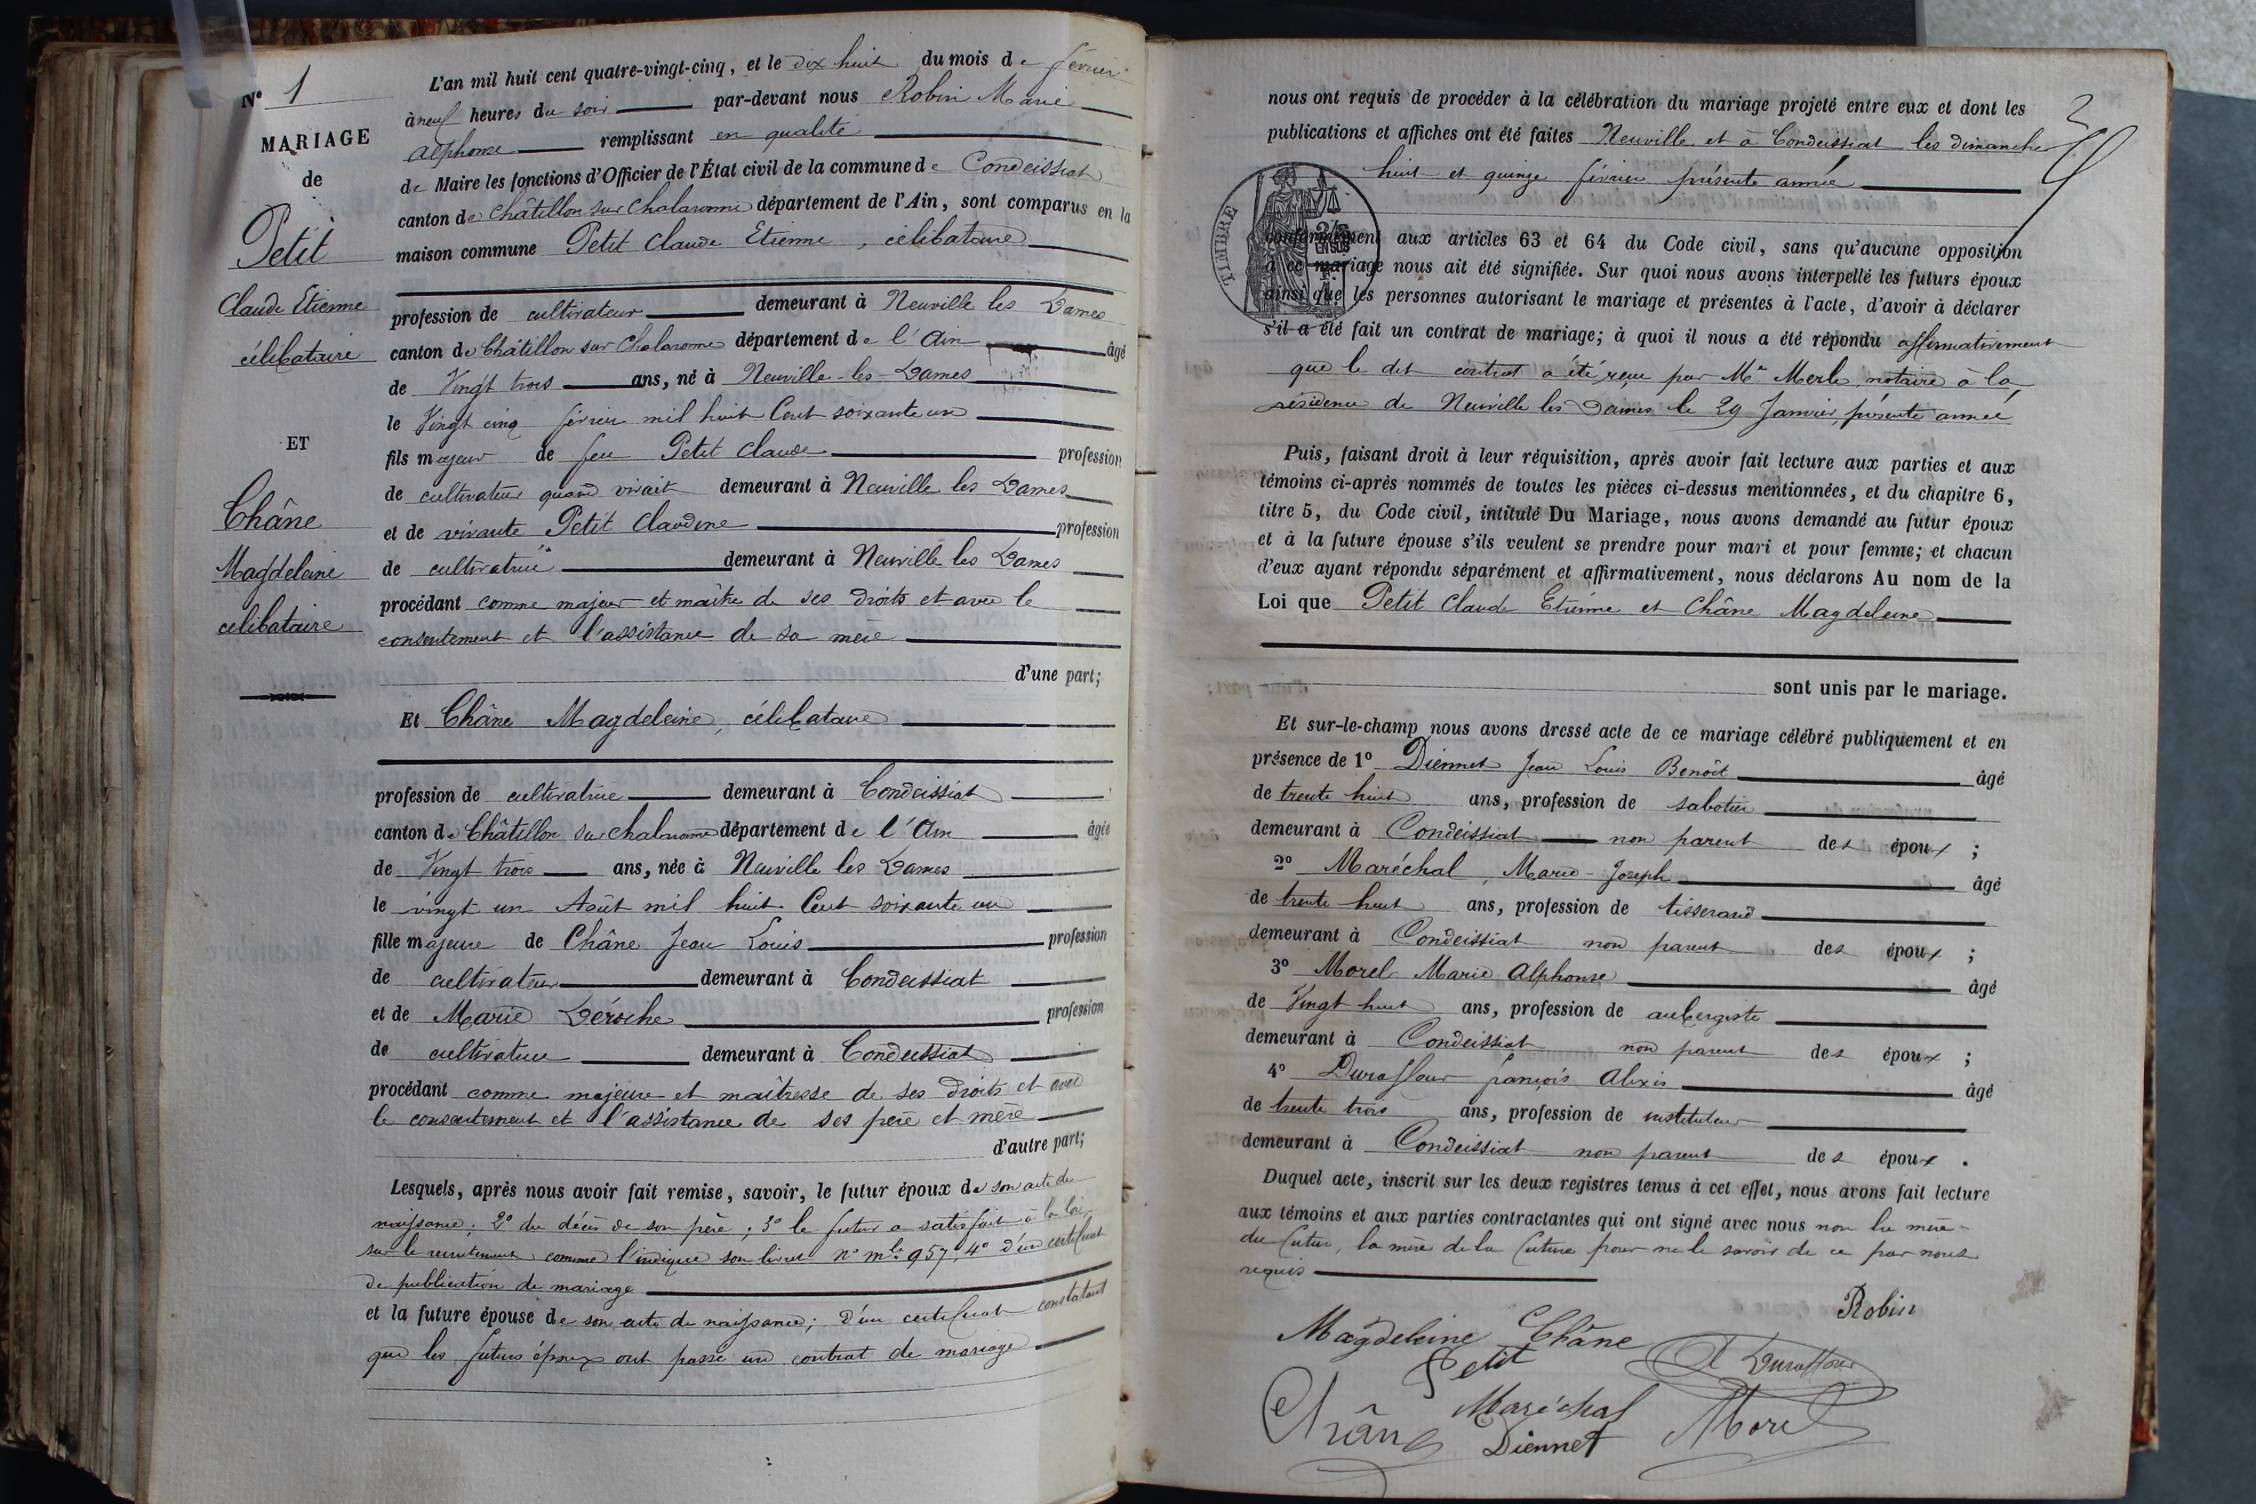 N° 1
MARIAGE
de
Petit
Claude Etienne
célibataire
ET
Châne
Magdeleine
célibataire
L'an mil huit cent quatre-vingt-cinq, et le dix huit du mois de février
à neuf heures du soir par-devant nous Robin Marie
Alphonse remplissant en qualité
de Maire les fonctions d'Officier de l'État civil de la commune de Condeissiat
canton de Châtillon sur Chalaronne département de l'Ain, sont comparus en la
maison commune Petit Claude Etienne, célibataire
profession de cultivateur demeurant à Neuville les Dames
canton de Châtillon sur Chalaronne département de l'Ain âgé
de Vingt trois ans, né à Neuville-les-Dames
le Vingt cinq février mil huit Cent soixante un
fils majeur de feu Petit Claude profession
de cultivateur quand vivait demeurant à Neuville les Dames
et de vivante Petit Claudine profession
de cultivatrice demeurant à Neuville les Dames
procédant comme majeur et maître de ses droits et avec le
consentement et l'assistance de sa mère
d'une part;
Et Châne Magdeleine, célibataire
profession de cultivatrice demeurant à Condeissiat
canton de Châtillon sur Chalaronne département de l'Ain âgée
de Vingt trois ans, née à Neuville les Dames
le vingt un Août mil huit Cent soixante un
fille majeure de Châne Jean Louis profession
de cultivateur demeurant à Condeissiat
et de Marie Déroche profession
de cultivatrice demeurant à Condeissiat
procédant comme majeure et maîtresse de ses droits et avec
le consentement et l'assistance de ses père et mère
d'autre part;
Lesquels, après nous avoir fait remise, savoir, le futur époux de son acte de
naissance; 2° du décès de son père; 3° le futur a satisfait à la loi
sur le recrutement comme l'indique son livret n° mle 957, 4° d'un certificat
de publication de mariage
et la future épouse de son acte de naissance; d'un certificat constatant
que les futurs époux ont passé un contrat de mariage
nous ont requis de procéder à la célébration du mariage projeté entre eux et dont les
publications et affiches ont été faites Neuville et à Condeissiat les dimanches
huit et quinze février présente année
TIMBRE
conformément aux articles 63 et 64 du Code civil, sans qu'aucune opposition
à ce mariage nous ait été signifiée. Sur quoi nous avons interpellé les futurs époux
ainsi que les personnes autorisant le mariage et présentes à l'acte, d'avoir à déclarer
s'il a été fait un contrat de mariage; à quoi il nous a été répondu affirmativement
que le dit contrat a été reçu par Me Merle notaire à la
résidence de Neuville les Dames le 29 Janvier, présente année
Puis, faisant droit à leur réquisition, après avoir fait lecture aux parties et aux
témoins ci-après nommés de toutes les pièces ci-dessus mentionnées, et du chapitre 6,
titre 5, du Code civil, intitulé Du Mariage, nous avons demandé au futur époux
et à la future épouse s'ils veulent se prendre pour mari et pour femme; et chacun
d'eux ayant répondu séparément et affirmativement, nous déclarons Au nom de la
Loi que Petit Claude Etienne et Châne Magdeleine
sont unis par le mariage.
Et sur-le-champ nous avons dressé acte de ce mariage célébré publiquement et en
présence de 1° Diennet Jean Louis Benoît âgé
de trente huit ans, profession de sabotier
demeurant à Condeissiat non parent des époux ;
2° Maréchal, Marie-Joseph âgé
de trente huit ans, profession de tisserand
demeurant à Condeissiat non parent des époux ;
3° Morel Marie Alphonse âgé
de Vingt huit ans, profession de aubergiste
demeurant à Condeissiat non parent des époux ;
4° Duraffour françois Alexis âgé
de trente trois ans, profession de instituteur
demeurant à Condeissiat non parent des époux .
Duquel acte, inscrit sur les deux registres tenus à cet effet, nous avons fait lecture
aux témoins et aux parties contractantes qui ont signé avec nous non la mère
du futur, la mère de la future pour ne le savoir de ce par nous
requis
Robin
Magdeleine Châne
Petit
Duraffour
Châne
Maréchal
Morel
Diennet